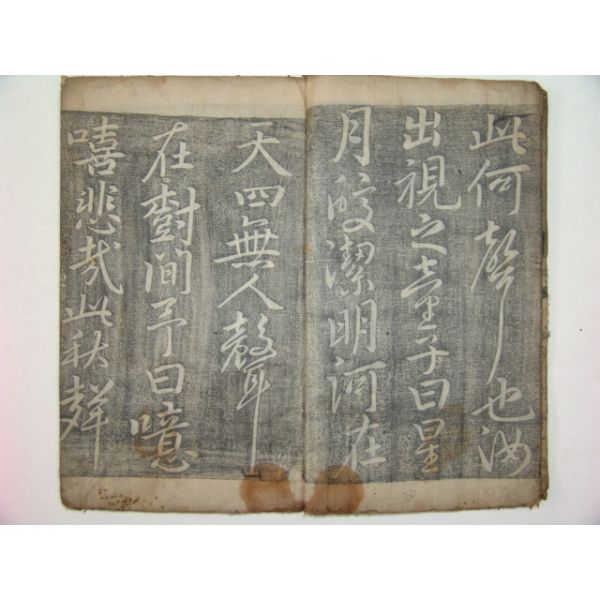 此何聲也汝
出視之童子曰星
月皎潔明河在
天四無人聲聲
在樹間予曰噫
嘻悲哉此秋聲